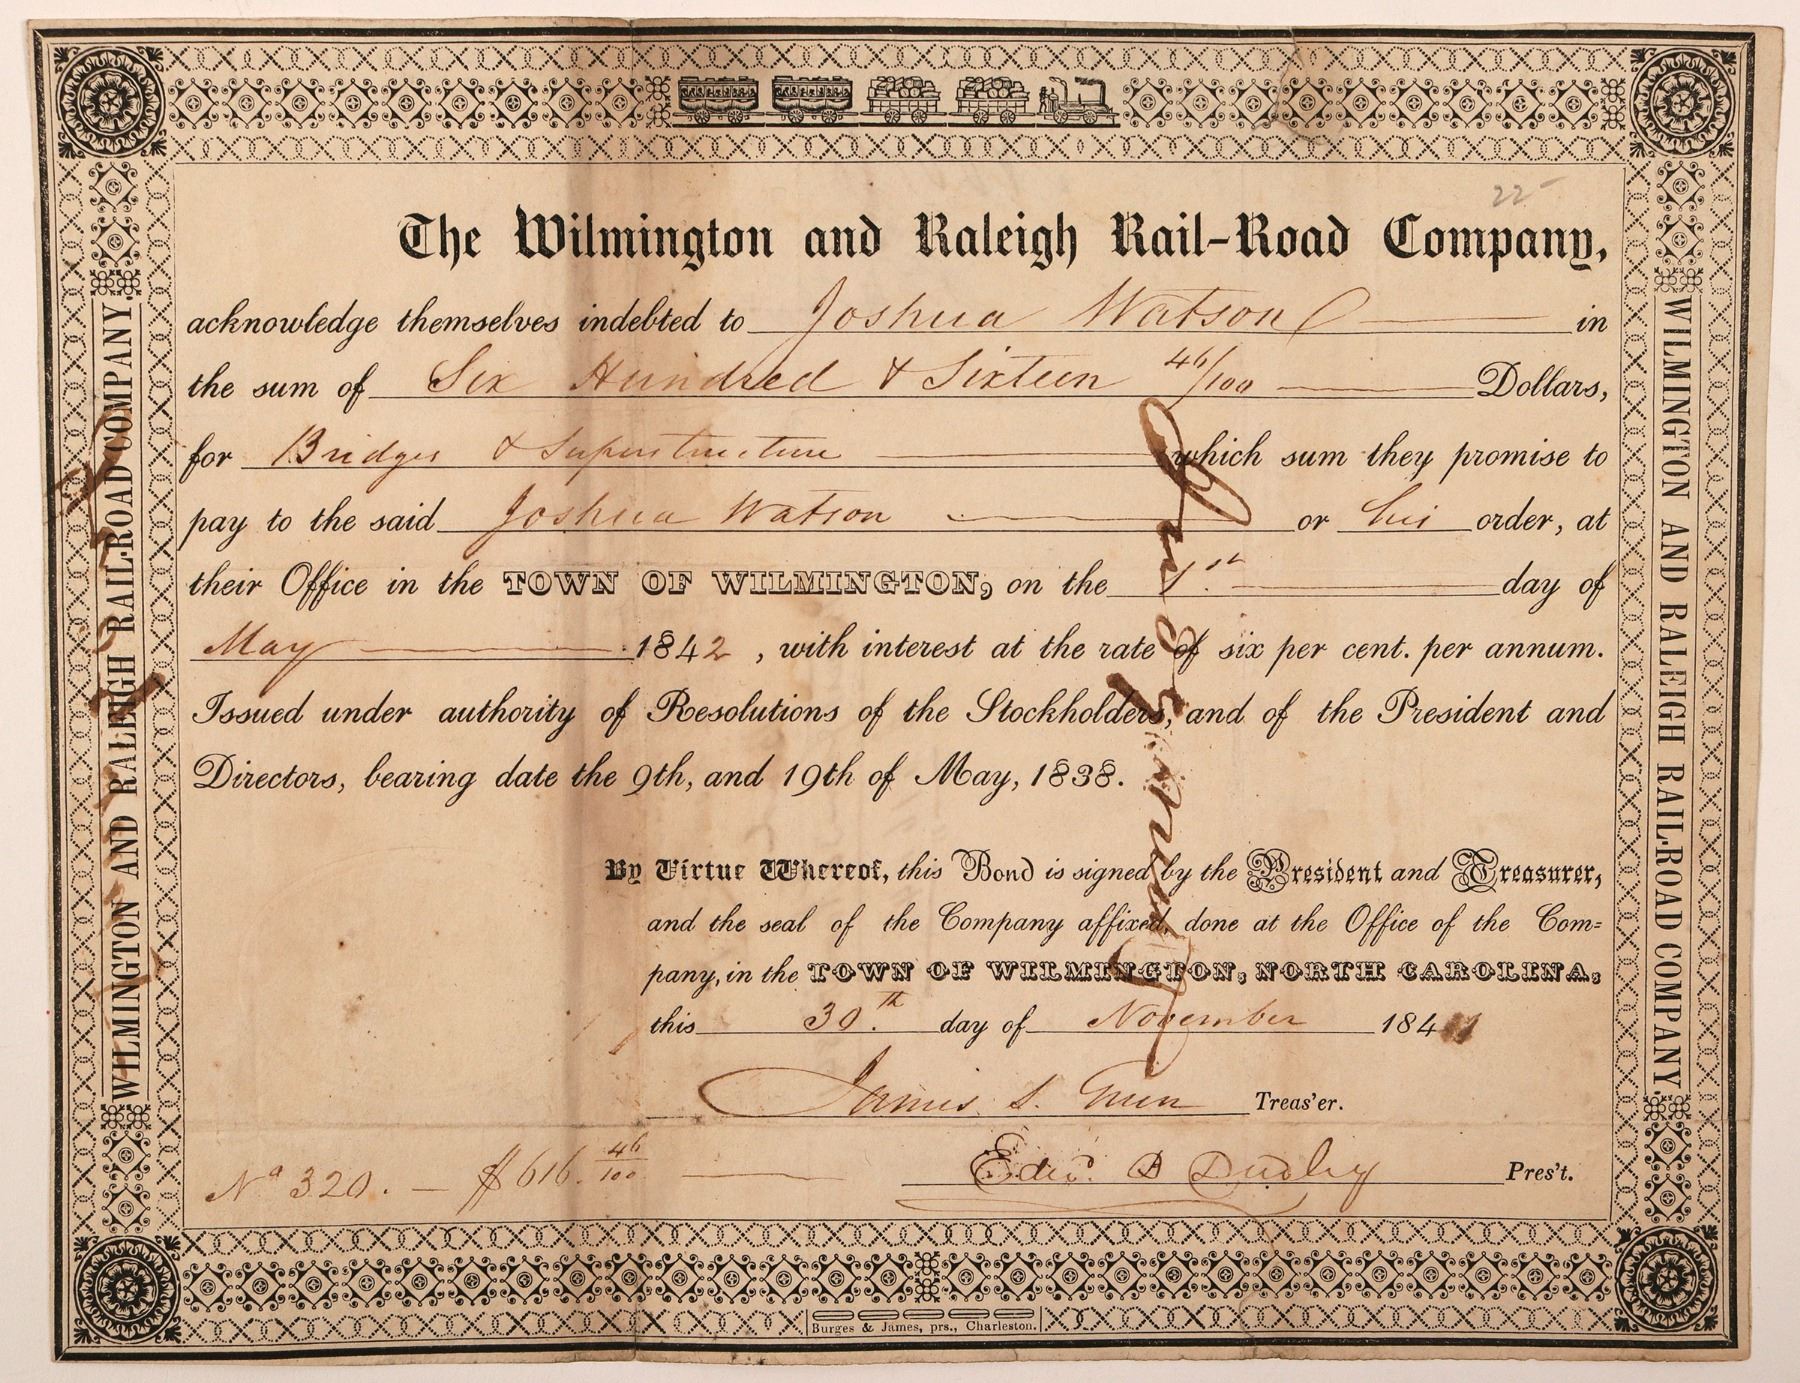 22
The Wilmington and Raleigh Rail-Road Company,
acknowledge themselves indebted to Joshua Watson in
the sum of Six Hundred & Sixteen 46/100 Dollars,
for Bridges & Superstructure which sum they promise to
pay to the said Joshua Watson or his order, at
their Office in the TOWN OF WILMINGTON, on the 1st day of
May 1842, with interest at the rate of six per cent. per annum.
Issued under authority of Resolutions of the Stockholders, and of the President and
Directors, bearing date the 9th, and 19th of May, 1838.
By Virtue Whereof, this Bond is signed by the President and Treasurer,
and the seal of the Company affixed, done at the Office of the Com=
pany, in the TOWN OF WILMINGTON, NORTH CAROLINA,
this 30th. day of November 1841
James S. Green Treas'er.
No 320. — $616.46/100
Edw. B Dudley Pres't.
WILMINGTON AND RALEIGH RAIL-ROAD COMPANY.
WILMINGTON AND RALEIGH RAIL-ROAD COMPANY.
Burges & James, prs., Charleston.